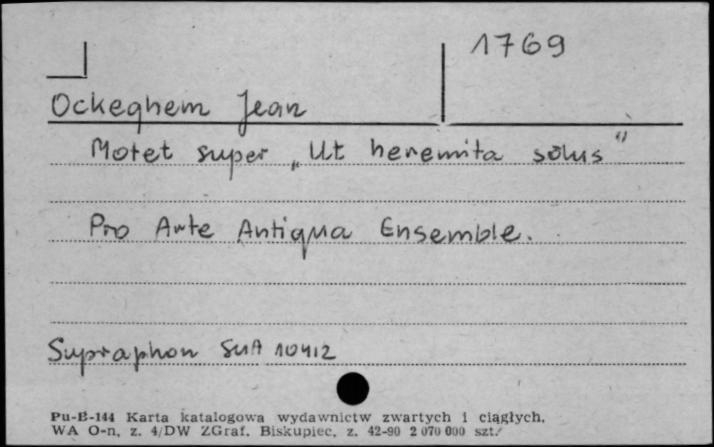 1769
Ockeghem Jean
Motet super „Ut heremita solus"
Pro Arte Antiqua Ensemble.
Supraphon SUA 10412
Pu-B-144 Karta katalogowa wydawnictw zwartych i ciągłych.
WA O-n, z. 4/DW ZGraf. Biskupiec, z. 42-90 2 070 000 szt.